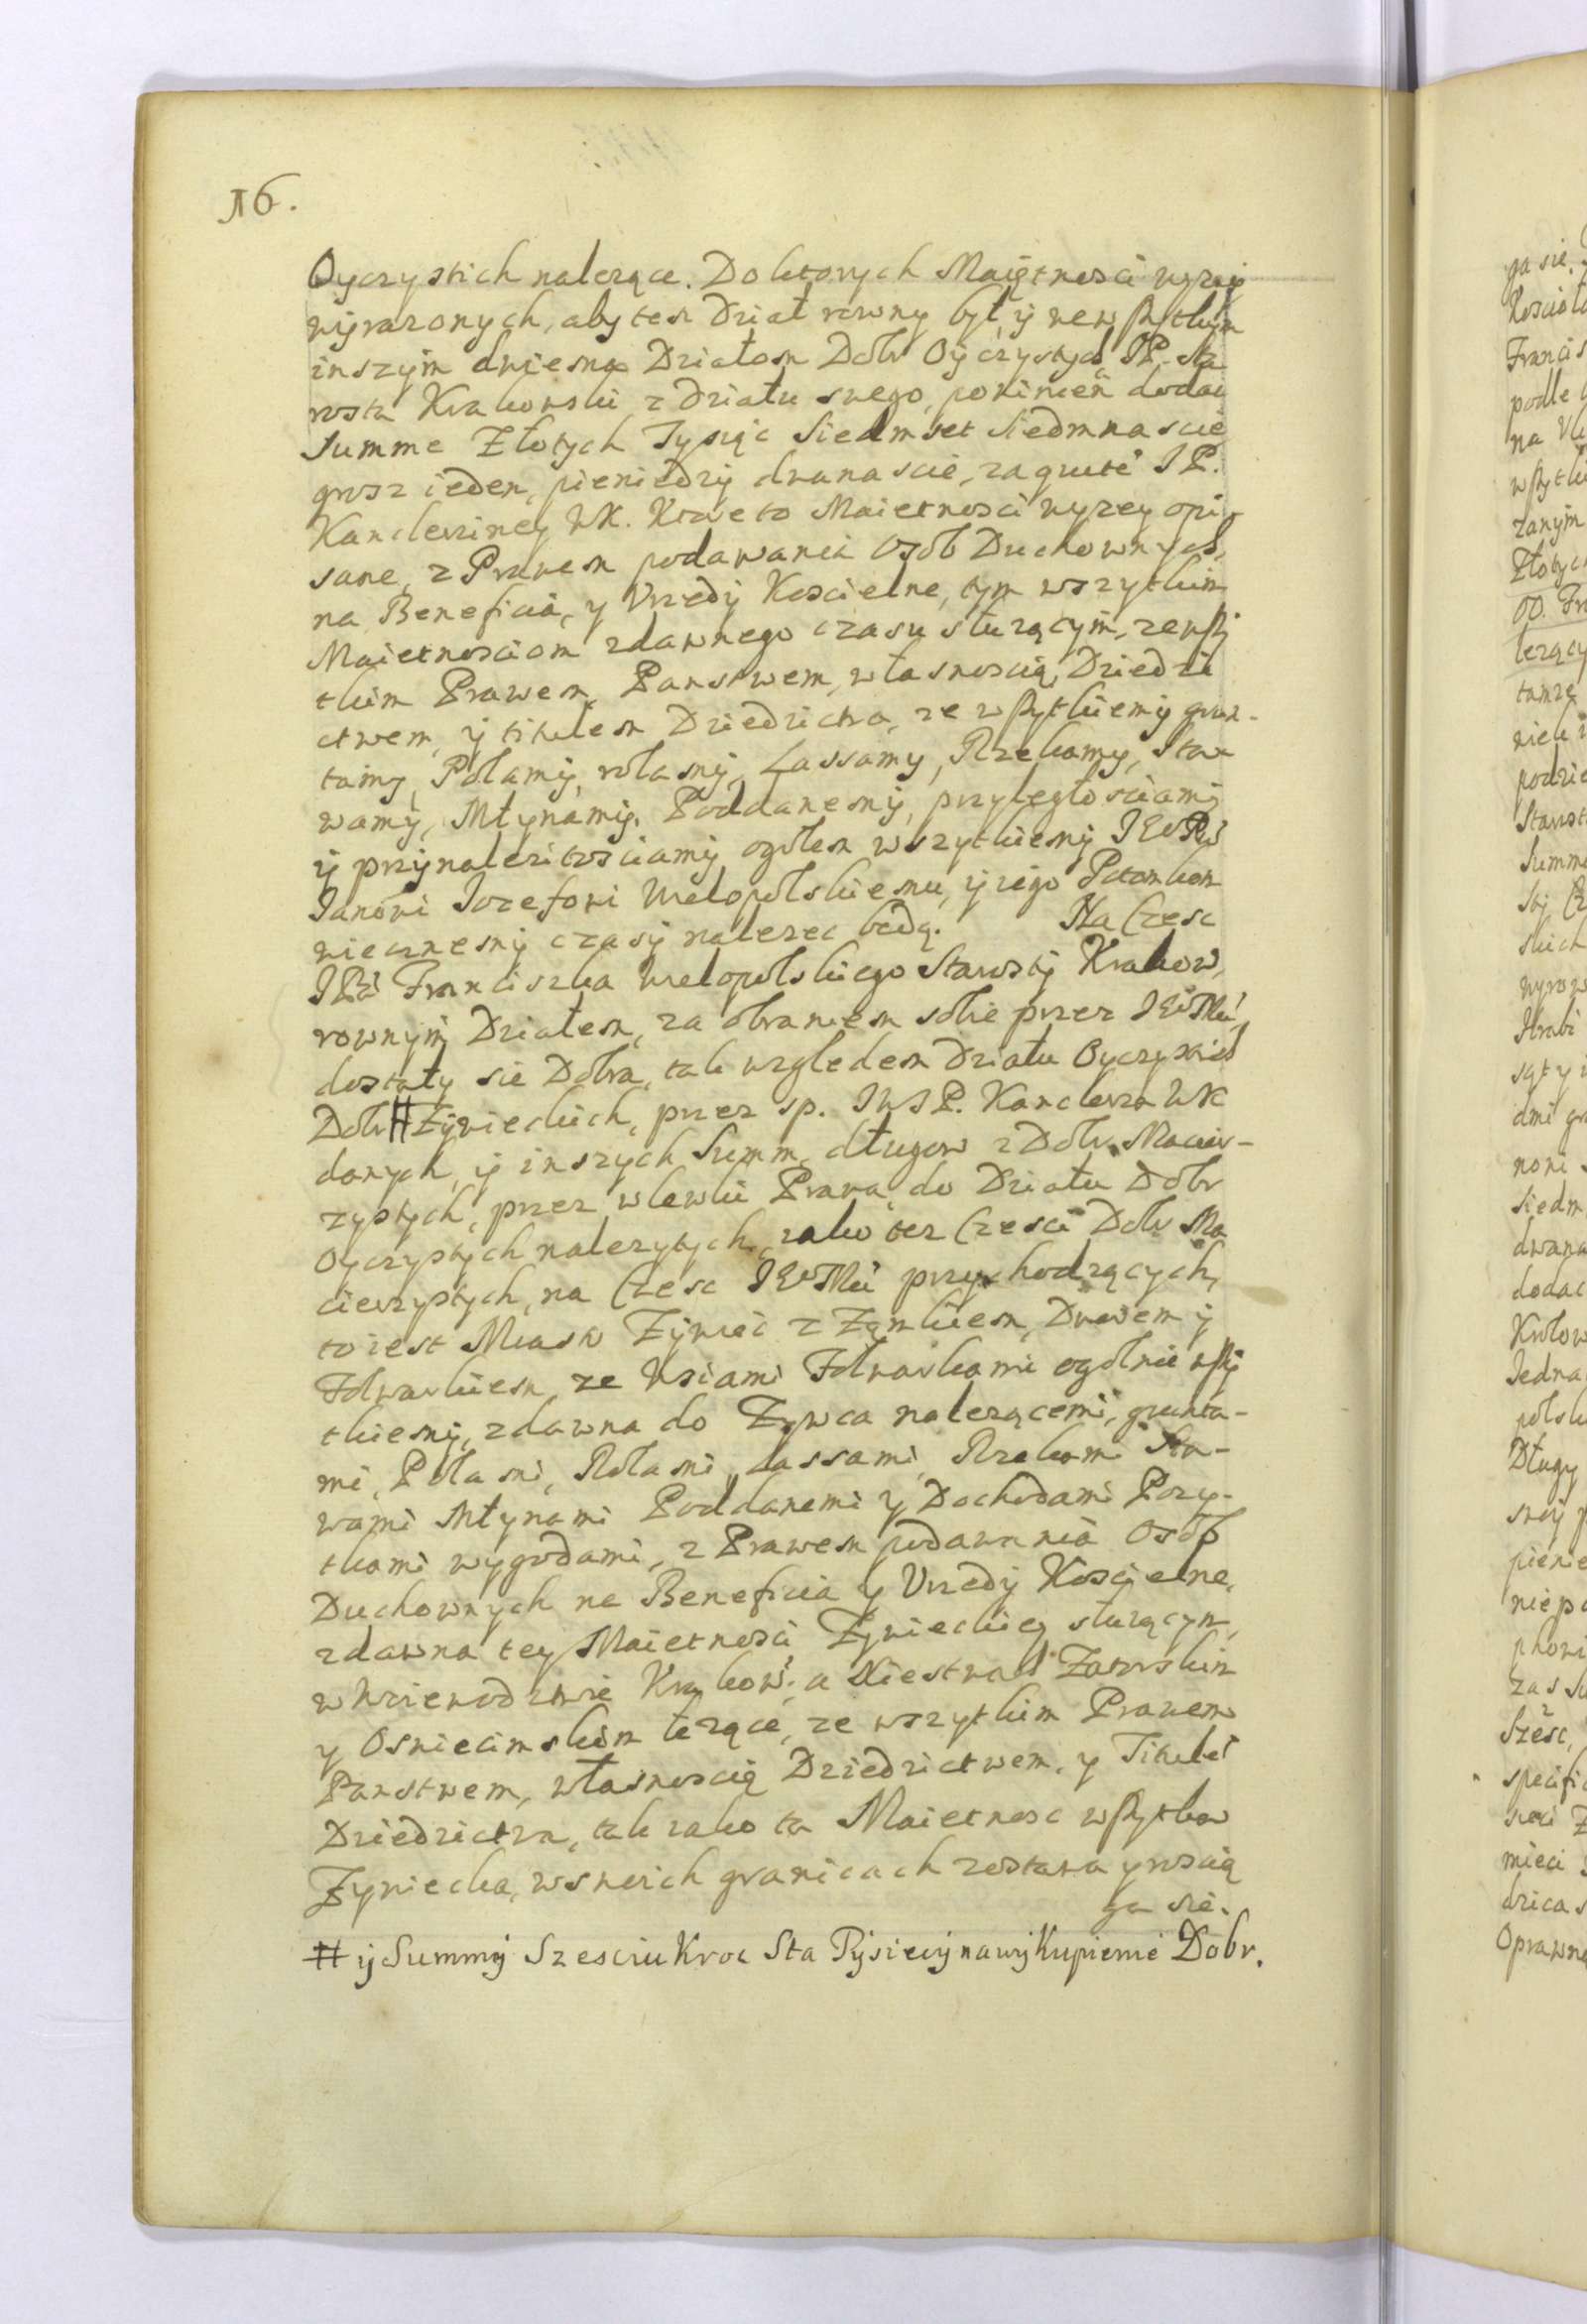 16.
Oyczystich nalezące. Do ktorych Maiętnosci wyzey
wyrazonych, aby ten Dział rowny był, y wewszytkim
inszym dwiema Działom Dobr Oyczystych, JP. Sta
rosta Krakowski z Działu swego, powinien dodac
Summe Złotych Tysiąc Siedmset Siedmnascie
grosz ieden, pieniędzy dwanascie, zaguite J P.
Kanclerziney WK. Ktore to Maietnosci wyzey opi-
sane, z Prawem podawania Osob Duchownych,
na Beneficia, y Vrzedy Koscielne, tym wszytkim
Maietnosciom zdawnego czasu służącym, zewszy
tkim Prawem, Panstwem, własnoscią, Dziedzi
ctwem, y titulem Dziedzictwa, ze wszytkiemy grun-
tamy, Polamy, rolamy, Lassamy, Rzekamy, Sta-
wamy, Młynamy, Poddanemy, przyległosciamy
y przynalezitosciamy ogołem wszytkiemy
Janowi Jozefowi Wielopolskiemu, y iego Potomkom
wiecznemy czasy nalezec będą. Na Czesc
JPa Franciszka Wielopolskiego Starosty Krakow,
rownym Działem, za obraniem sobie przez JEoMci
dostały sie Dobra, tak względem Działu Oyczystich
Dobr # Zywieckich, przez sp. JWJP. Kanclerza WK
danych, y inszych Summ, długow z Dobr Macier-
zystych, przez wlewki Prawa, do Działu Dobr
Oyczystych nalezytych, iako tez Czesci Dobr Ma
cierzystych, na Czesc JEoMci przychodzących,
to iest Miasto Zywiec z Zamkiem, Dworem y
Folwarkiem, ze Wsiami Folwarkami ogolnie wszy
tkiemy, zdawna do Zywca nalezącemi, grunta-
mi, Polami, Rolami, Lassami, Rzekami Sta-
wami Młynami Poddanemi y Dochodami Pozy-
tkami wygodami, z Prawem podawania Osob
Duchownych na Beneficia y Vrzedy Koscielne,
zdawna tey Maietnosci Zywieckiey służącym,
w Woiewodztwie Krakow: a Xiestwach Zatorskim
y Osniecimskim lezące, ze wszytkim Prawem
Panstwem, własnoscią Dziedzictwem, y Titulem
Dziedzictwa, tak iako ta Maietnosc wszytka
Zywiecka, wswoich granicach zostawa y roscią
ga sie.
# y Summy Szesciu Kroc Sta Tysiecy nawykupienie Dobr.